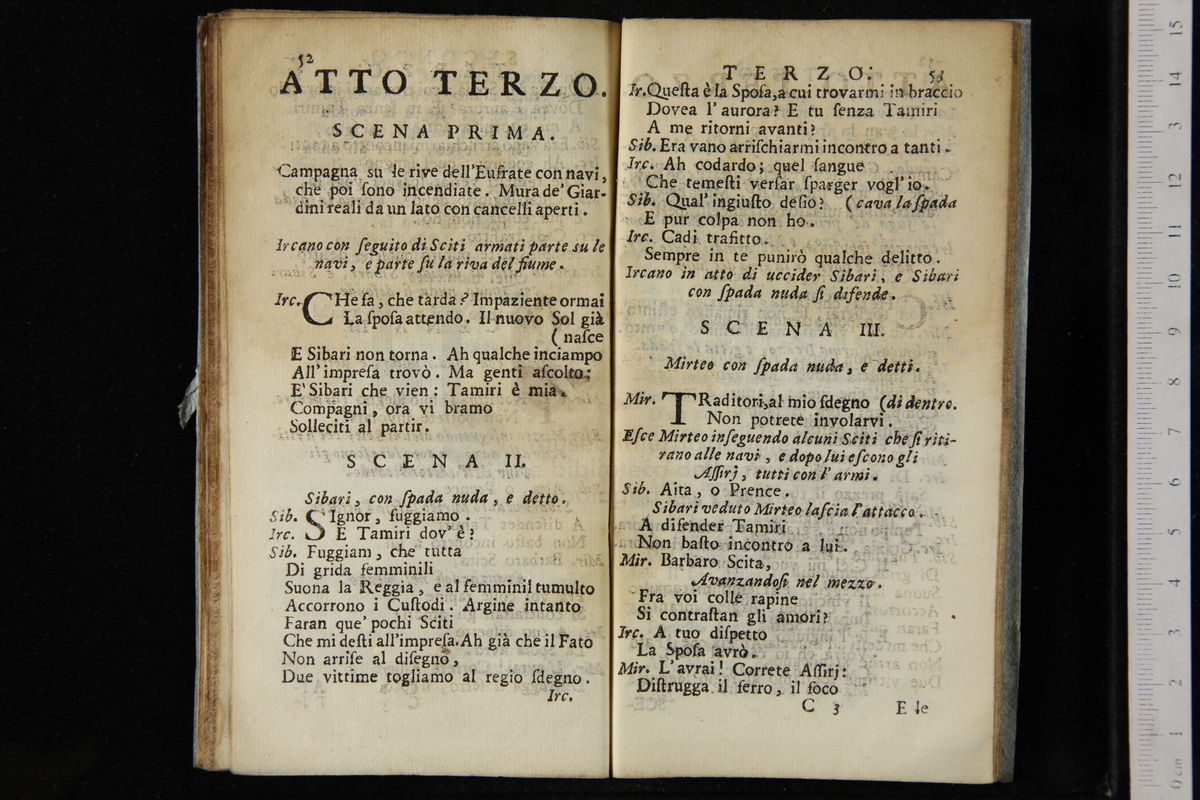 52
ATTO TERZO.
SCENA PRIMA.
Campagna su le rive dell'Eufrate con navi,
che poi sono incendiate. Mura de' Giar-
dini reali da un lato con cancelli aperti.
Ircano con ſeguito di Sciti armati parte su le
navi, e parte ſu la riva del fiume.
Irc. CHe fa, che tarda? Impaziente ormai
La ſpoſa attendo. Il nuovo Sol già
(naſce
E Sibari non torna. Ah qualche inciampo
All' impreſa trovò. Ma genti aſcolto:
E' Sibari che vien: Tamiri è mia.
Compagni, ora vi bramo
Solleciti al partir.
SCENA II.
Sibari, con ſpada nuda, e detto.
Sib. SIgnor, fuggiamo.
Irc. E Tamiri dov' è?
Sib. Fuggiam, che tutta
Di grida femminili
Suona la Reggia, e al femminil tumulto
Accorrono i Cuſtodi. Argine intanto
Faran que' pochi Sciti
Che mi deſti all' impreſa. Ah già che il Fato
Non arriſe al diſegno,
Due vittime togliamo al regio ſdegno.
Irc.
TERZO. 53
Ir. Queſta è la Spoſa, a cui trovarmi in braccio
Dovea l' aurora? E tu ſenza Tamiri
A me ritorni avanti?
Sib. Era vano arriſchiarmi incontro a tanti.
Irc. Ah codardo; quel ſangue
Che temeſti verſar ſparger vogl' io.
Sib. Qual' ingiuſto deſio? (cava la ſpada
E pur colpa non ho.
Irc. Cadi trafitto.
Sempre in te punirò qualche delitto.
Ircano in atto di uccider Sibari, e Sibari
con ſpada nuda ſi difende.
SCENA III.
Mirteo con ſpada nuda, e detti.
Mir. TRaditori, al mio ſdegno (di dentro.
Non potrete involarvi.
Eſce Mirteo inſeguendo alcuni Sciti che ſi riti-
rano alle navi, e dopo lui eſcono gli
Aſſirj, tutti con l' armi.
Sib. Aita, o Prence.
Sibari veduto Mirteo laſcia l' attacco.
A difender Tamiri
Non baſto incontro a lui.
Mir. Barbaro Scita,
Avanzandoſi nel mezzo.
Fra voi colle rapine
Si contraſtan gli amori?
Irc. A tuo diſpetto
La Spoſa avrò.
Mir. L' avrai! Correte Aſſirj:
Diſtrugga il ferro, il foco
C 3 E le